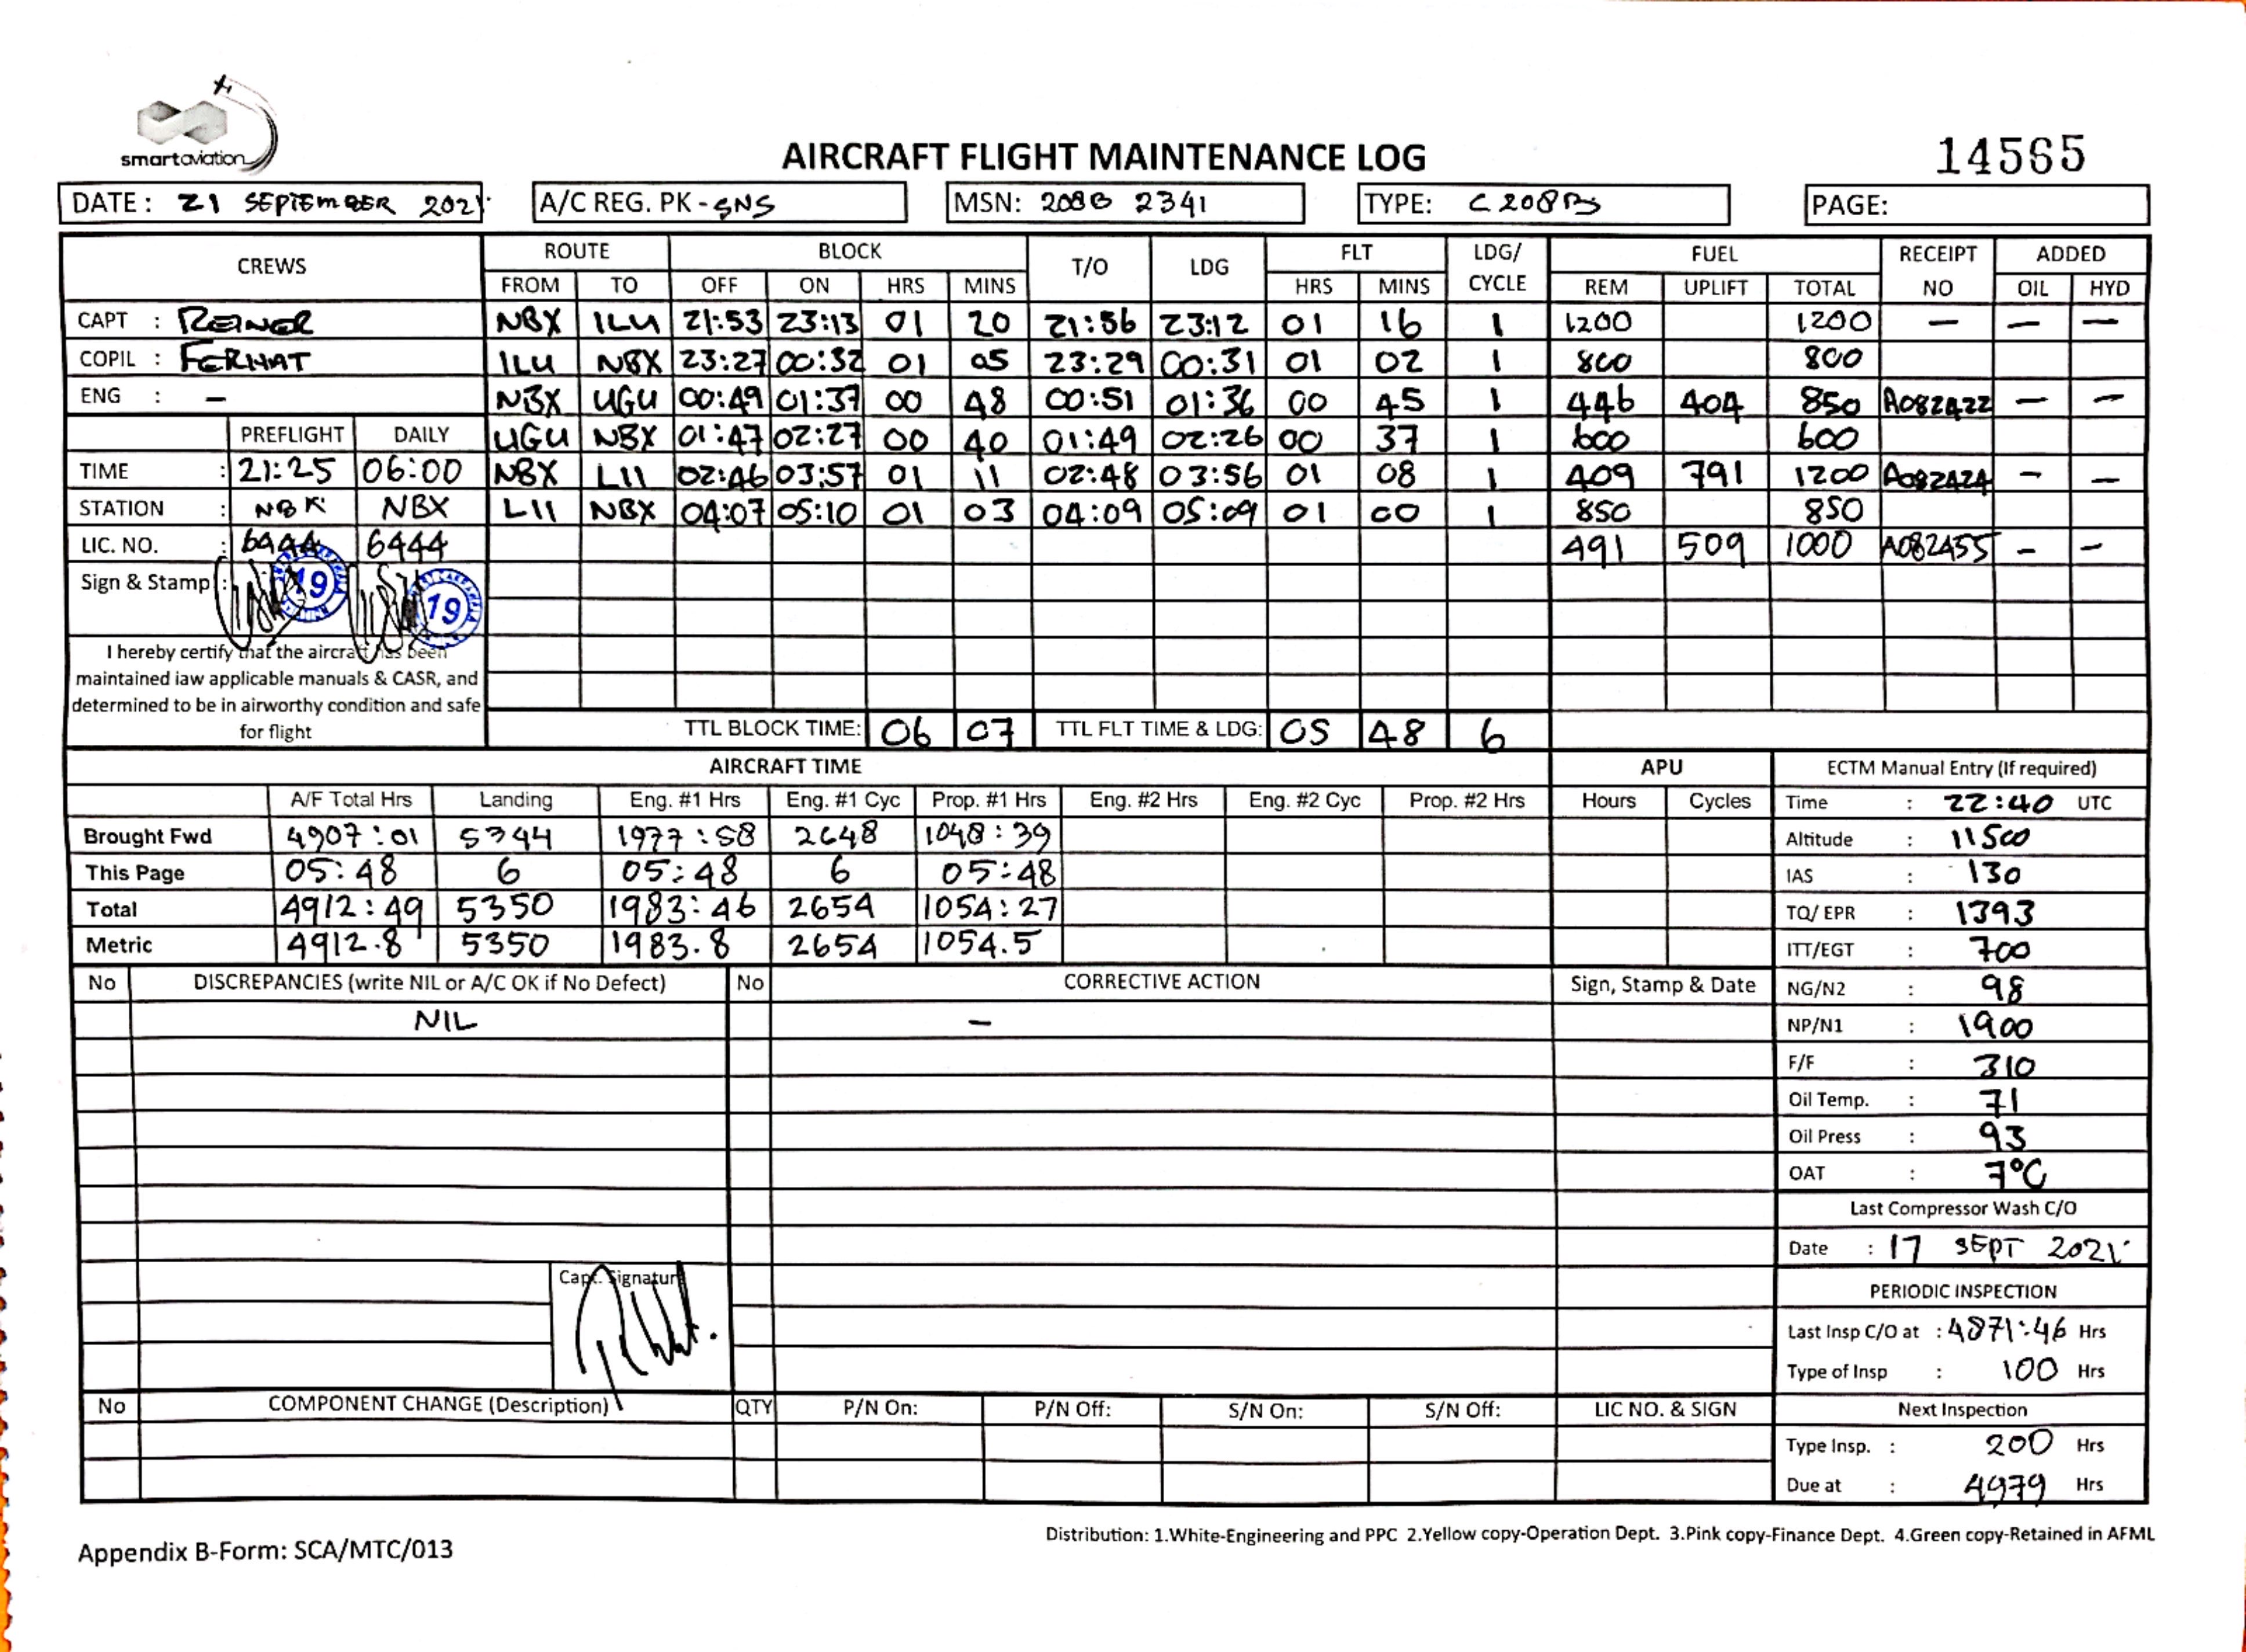 smartaviation
AIRCRAFT FLIGHT MAINTENANCE LOG
14565
DATE: 21 SEPTEMBER 2021 A/C REG. PK-SNS MSN: 208B 2341 TYPE: C208B PAGE:
CREWS ROUTE BLOCK T/O LDG FLT LDG/CYCLE FUEL RECEIPT NO ADDED
FROM TO OFF ON HRS MINS HRS MINS REM UPLIFT TOTAL OIL HYD
CAPT : REINER NBX ILU 21:53 23:13 01 20 21:56 23:12 01 16 1 1200 1200 — — —
COPIL : FERHAT ILU NBX 23:27 00:32 01 05 23:29 00:31 01 02 1 800 800
ENG : — NBX UGU 00:49 01:37 00 48 00:51 01:36 00 45 1 446 404 850 A082422 — —
PREFLIGHT DAILY UGU NBX 01:47 02:27 00 40 01:49 02:26 00 37 1 600 600
TIME : 21:25 06:00 NBX LII 02:46 03:57 01 11 02:48 03:56 01 08 1 409 791 1200 A082424 — —
STATION : NBX NBX LII NBX 04:07 05:10 01 03 04:09 05:09 01 00 1 850 850
LIC. NO. : 6444 6444 491 509 1000 A082455 — —
Sign & Stamp : 19 19
I hereby certify that the aircraft has been
maintained iaw applicable manuals & CASR, and
determined to be in airworthy condition and safe
for flight
TTL BLOCK TIME: 06 07 TTL FLT TIME & LDG: 05 48 6
AIRCRAFT TIME APU ECTM Manual Entry (If required)
A/F Total Hrs Landing Eng. #1 Hrs Eng. #1 Cyc Prop. #1 Hrs Eng. #2 Hrs Eng. #2 Cyc Prop. #2 Hrs Hours Cycles Time : 22:40 UTC
Brought Fwd 4907:01 5344 1977:58 2648 1048:39 Altitude : 11500
This Page 05:48 6 05:48 6 05:48 IAS : 130
Total 4912:49 5350 1983:46 2654 1054:27 TQ/ EPR : 1393
Metric 4912.8 5350 1983.8 2654 1054.5 ITT/EGT : 700
No DISCREPANCIES (write NIL or A/C OK if No Defect) No CORRECTIVE ACTION Sign, Stamp & Date NG/N2 : 98
NIL — NP/N1 : 1900
F/F : 310
Oil Temp. : 71
Oil Press : 93
OAT : 7°C
Last Compressor Wash C/O
Date : 17 SEPT 2021
Capt. Signature
PERIODIC INSPECTION
Last Insp C/O at : 4871:46 Hrs
Type of Insp : 100 Hrs
No COMPONENT CHANGE (Description) QTY P/N On: P/N Off: S/N On: S/N Off: LIC NO. & SIGN Next Inspection
Type Insp. : 200 Hrs
Due at : 4979 Hrs
Distribution: 1.White-Engineering and PPC 2.Yellow copy-Operation Dept. 3.Pink copy-Finance Dept. 4.Green copy-Retained in AFML
Appendix B-Form: SCA/MTC/013